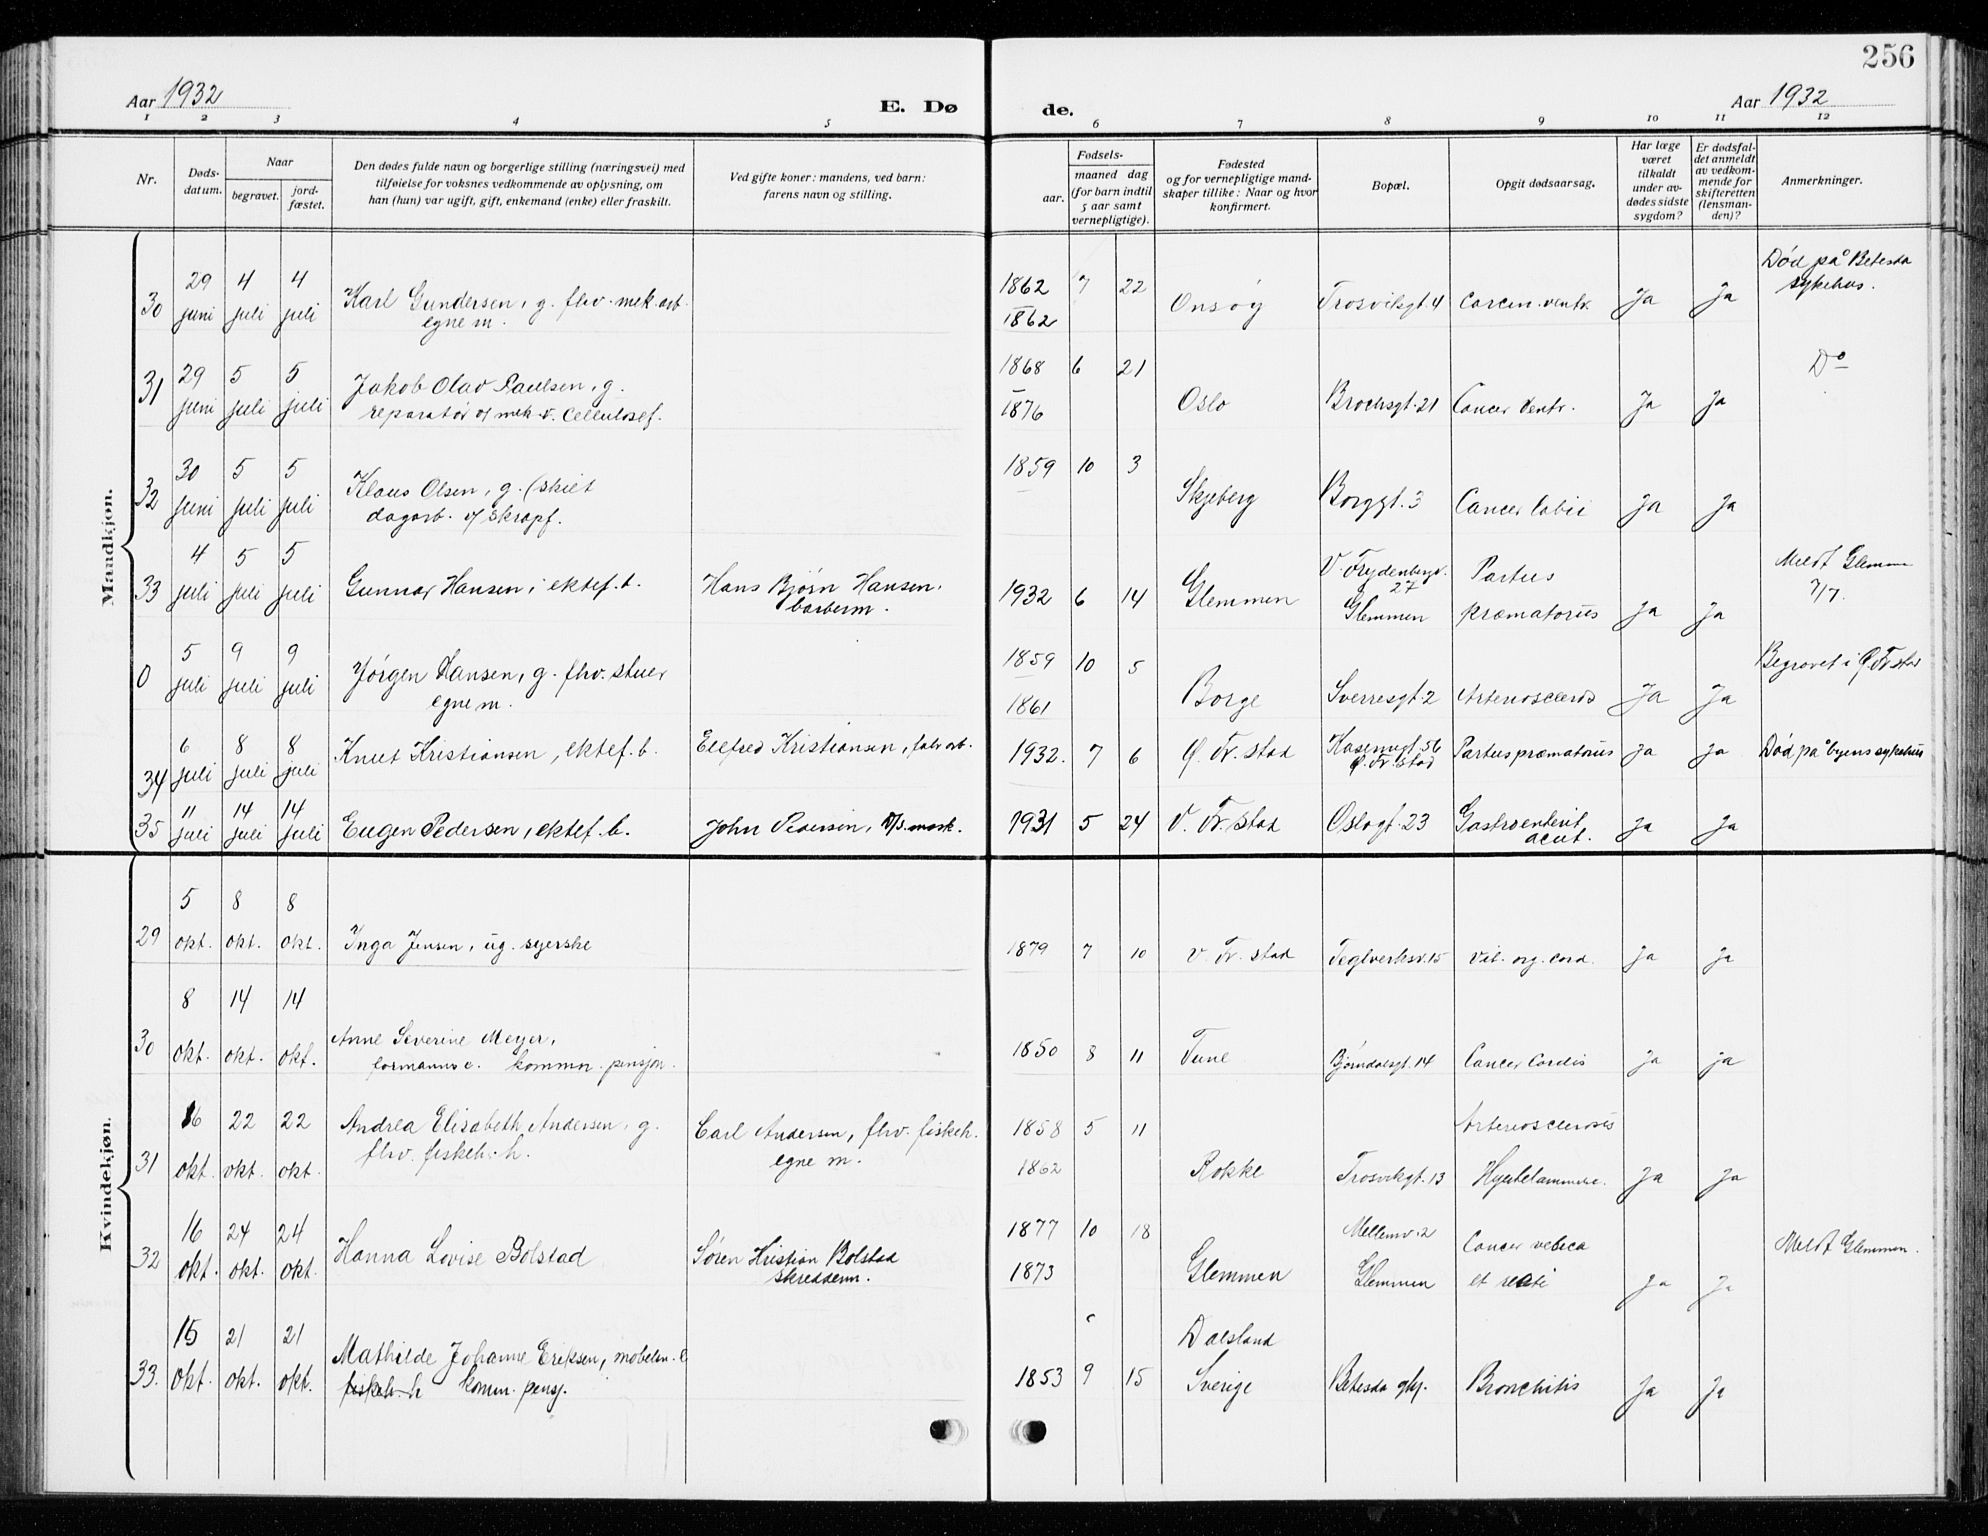 256
Aar 1932
E. Dø
de.
Aar 1932
1 2 3 4 5 6 7 8 9 10 11 12
Nr.
Døds-
datum.
Naar
begravet.
jord-
fæstet.
Den dødes fulde navn og borgerlige stilling (næringsvei) med
tilføielse for voksnes vedkommende av oplysning, om
han (hun) var ugift, gift, enkemand (enke) eller fraskilt.
Ved gifte koner: mandens, ved barn:
farens navn og stilling.
Fødsels-
aar.
maaned dag
(for barn indtil
5 aar samt
vernepligtige).
Fødested
og for vernepligtige mand-
skaper tillike: Naar og hvor
konfirmert.
Bopæl.
Opgit dødsaarsag.
Har læge
været
tilkaldt
under av-
dødes sidste
sygdom?
Er dødsfal-
det anmeldt
av vedkom-
mende for
skifteretten
(lensman-
den)?
Anmerkninger.
Mandkjøn.
30 29 juni 4 juli 4 juli
Karl Gundersen, g. fhv. mek. arb.
egne m.
1862 7 22
1862
Onsøy Trosviksgt. 4 Carcin. ventr. Ja Ja
Død på Betesda
sykehus.
31 29 juni 5 juli 5 juli
Jakob Olav Paulsen, g.
reparatør v/ mek. v. Cellulosef.
1868 6 21
1876
Oslo Brochsgt. 21 Cancer Ventr. Ja Ja
Do
32 30 juni 5 juli 5 juli
Klaus Olsen, g. (skilt
dagarb. v/ skrapf.
1859 10 3
Skjeberg Borggt. 3 Cancer Labii Ja Ja
33 4 juli 5 juli 5 juli
Gunnar Hansen, ektef. b.
Hans Bjørn Hansen,
barberm.
1932 6 14
Glemmen
V. Frydenbergv.
27
Glemmen
Partus
præmatorius
Ja Ja
Meldt Glemmen
7/7.
0 5 juli 9 juli 9 juli
Jørgen Hansen, g. fhv. stuer
egne m.
1859 10 5
1861
Borge Sverresgt. 2 Arterioscleros Ja Ja
Begravet i Ø. Fr.stad
34 6 juli 8 juli 8 juli
Knut Kristiansen, ektef. b.
Ellefred Kristiansen, fabr. arb.
1932. 7 6
Ø. Fr. stad
Kasernegt. 56
Ø. Fr. stad
Partus præmatorius Ja Ja
Død på byens sykehus
35 11 juli 14 juli 14 juli
Eugen Pedersen, ektef. b.
John Pedersen, D/S. mask.
1931 5 24
V. Fr. stad Oslogt. 23
Gastroenterit
acut.
Ja Ja
Kvindekjøn.
29 5 okt. 8 okt. 8 okt.
Inga Jensen, ug. syerske
1879 7 10
V. Fr. stad Teglverksv. 15 Vit. org. cord. Ja Ja
30 8 okt. 14 okt. 14 okt.
Anne Severine Meyer,
formanns e. kommn. pensjon.
1850 8 11
Tune Bjørndalsgt. 14 Cancer Cordis Ja Ja
31 16 okt. 22 okt. 22 okt.
Andrea Elisabeth Andersen, g.
fhv. fiskeh. h.
Carl Andersen, fhv. fiskeh.
egne m.
1858 5 11
1862
Rokke Trosvikgt. 13
Arteriosclerosis
Hjertelammelse.
Ja Ja
32 16 okt. 24 okt. 24 okt.
Hanna Lovise Bolstad
Søren Kristian Bolstad
skredderm.
1877 10 18
1873
Glemmen
Mellemv. 2
Glemmen
Cancer vesica
et recti
Ja Ja
Meldt Glemmen.
33. 15 okt. 21 okt. 21 okt.
Mathilde Johanne Eriksen, møbelsn. e
fiskeh. h komm. pensj.
1853 9 15
Dalsland
Sverige
Betesda gkj. Bronchitis Ja Ja